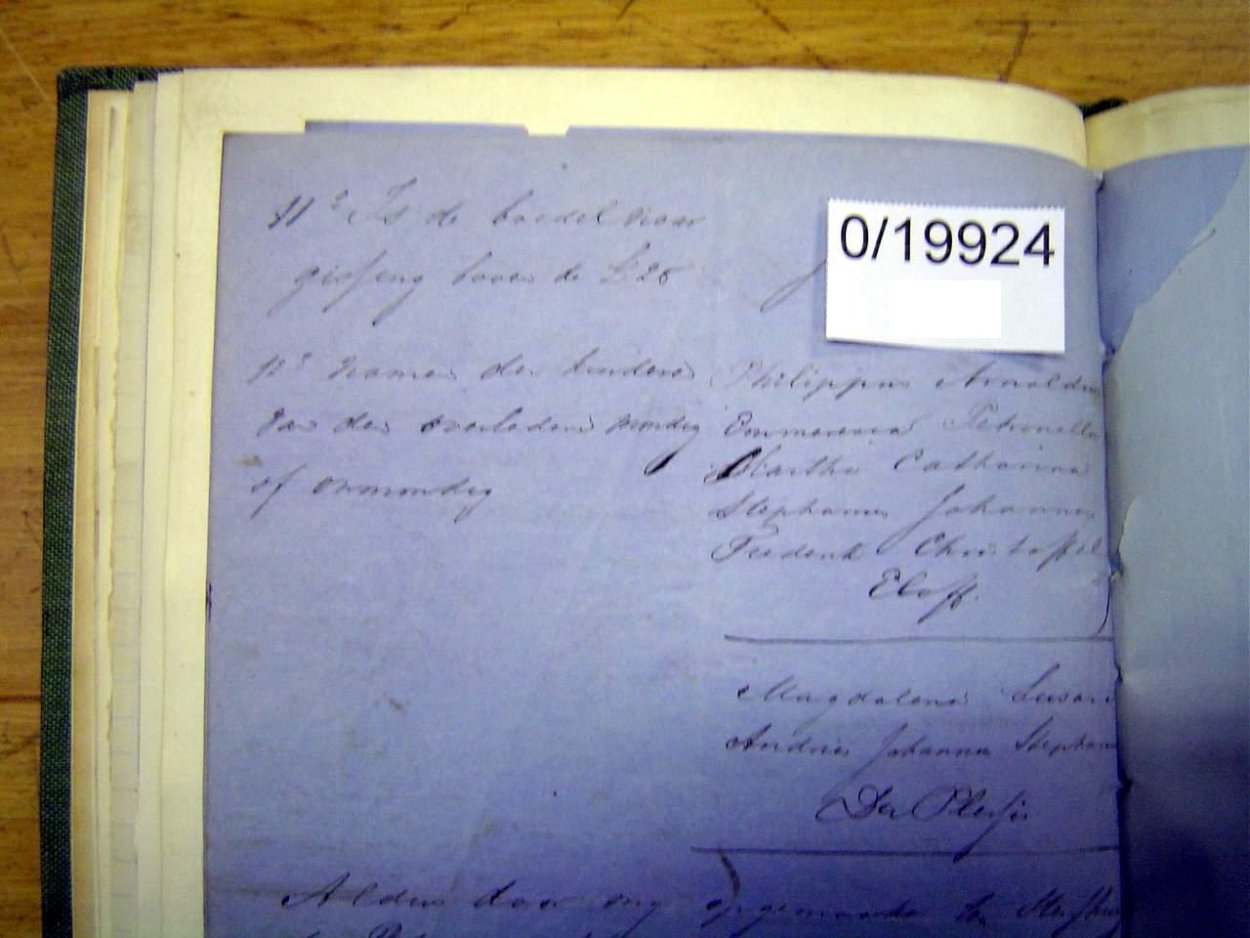 11e Is de boedel naar
gissing boven de £ 25
0/19924
12e Namen der kinderen
van den overledene mondig
of onmondig
Philippus Arnoldus
Emmerensia Petronella
Martha Catharina
Stephanus Johannes
Frederik Christoffel
Eloff.
Magdalena Susan
Andries Johannes Stephan
Du Plessis
Aldus door my opgemaakt